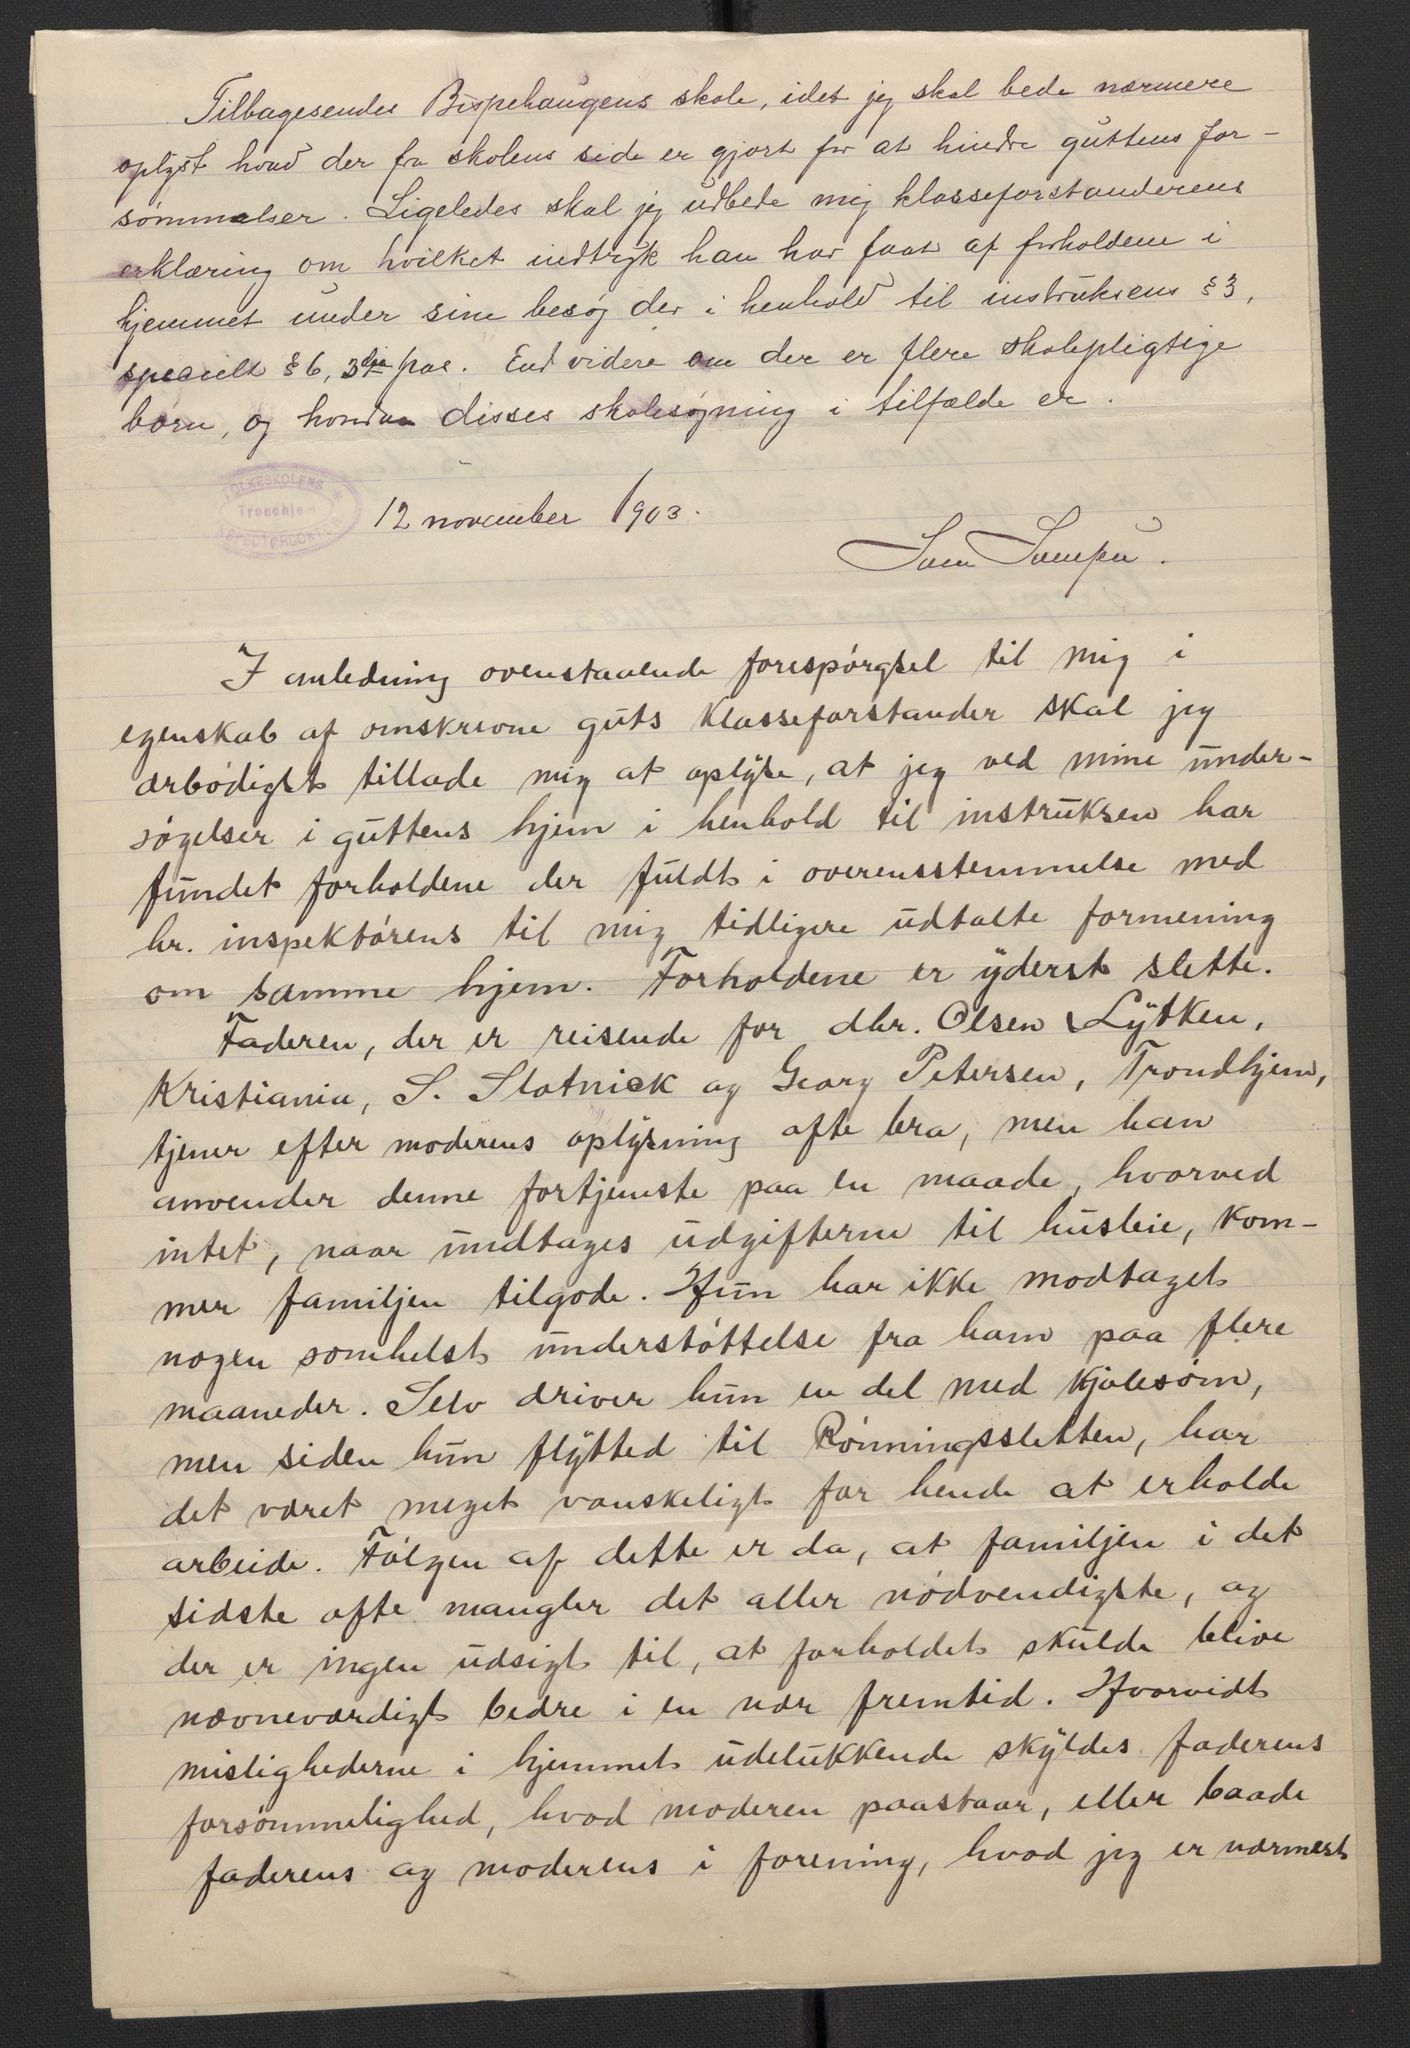 Tilbagesendes Bispehaugens skole, idet jeg skal bede nærmere
oplyst hvad der fra skolens side er gjort for at hindre guttens for-
sømmelser. Ligeledes skal jeg udbede mig klasseforstanderens
erklæring om hvilket indtryk han har faat af forholdene i
hjemmet under sine besøg der i henhold til instruksens § 3,
specielt § 6, 3die pas. End videre om der er flere skolepligtige
børn, og hvordan disses skolesøgning i tilfælde er.
FOLKESKOLENS
Trondhjem
INSPECTØRCONTOR
12 november 1903.
I anledning ovenstaaende forespørgsel til mig i
egenskab af omskrevne guts klasseforstander skal jeg
ærbødigst tillade mig at oplyse, at jeg ved mine under-
søgelser i guttens hjem i henhold til instruksen har
fundet forholdene der fuldt i overensstemmelse med
hr. inspektørens til mig tidligere udtalte formening
om samme hjem. Forholdene er yderst slette.
Faderen, der er reisende for dhr. Olsen Lytken,
Kristiania, S. Slotnick og Georg Petersen, Trondhjem,
tjener efter moderens oplysning ofte bra, men han
anvender denne fortjeneste paa en maade, hvorved
intet, naar undtages udgifterne til husleie, kom-
mer familjen tilgode. Hun har ikke modtaget
nogen somhelst understøttelse fra ham paa flere
maaneder. Selv driver hun en del med kjolesøm,
men siden hun flytted til Rønningssletten, har
det været meget vanskeligt for hende at erholde
arbeide. Følgen af dette er da, at familjen i det
sidste ofte mangler det aller nødvendigste, og
der er ingen udsigt til, at forholdet skulde blive
nævneværdigt bedre i en nær fremtid. Hvorvidt
mislighederne i hjemmet udelukkende skyldes faderens
forsømmelighed, hvad moderen paastaar, eller baade
faderens og moderens i forening, hvad jeg er nærmest